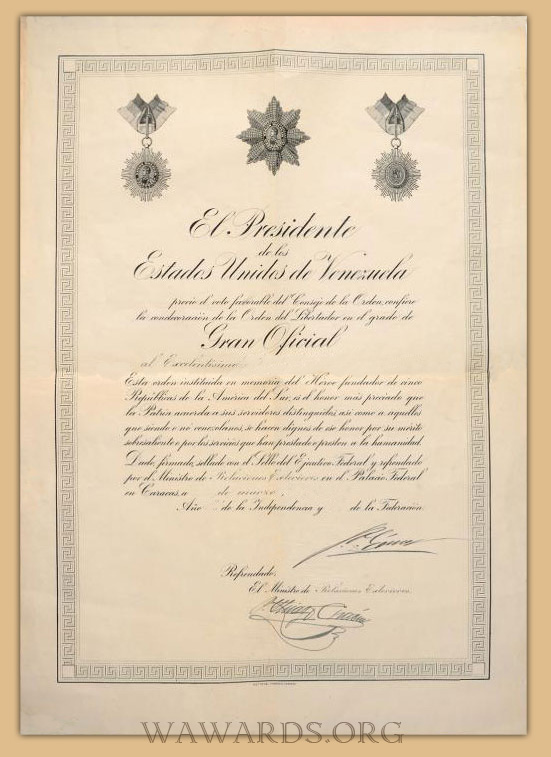 El Presidente
de los
Estados Unidos de Venezuela
previo el voto favorable del Consejo de la Orden, confiere
la condecoración de la Orden del Libertador en el grado de
Gran Oficial
al Excelentísimo
Esta orden instituida en memoria del Héroe fundador de cinco
Repúblicas de la América del Sur, es el honor más preciado que
la Patria acuerda a sus servidores distinguidos, así como a aquellos
que siendo o nó venezolanos, se hacen dignos de ese honor por su mérito
sobresaliente o por los servicios que han prestado o presten a la humanidad.
Dado, firmado, sellado con el Sello del Ejecutivo Federal y refrendado
por el Ministro de Relaciones Exteriores en el Palacio Federal
en Caracas, a de marzo
Año de la Independencia y de la Federación
Refrendado.
El Ministro de Relaciones Exteriores.
WAWARDS.ORG